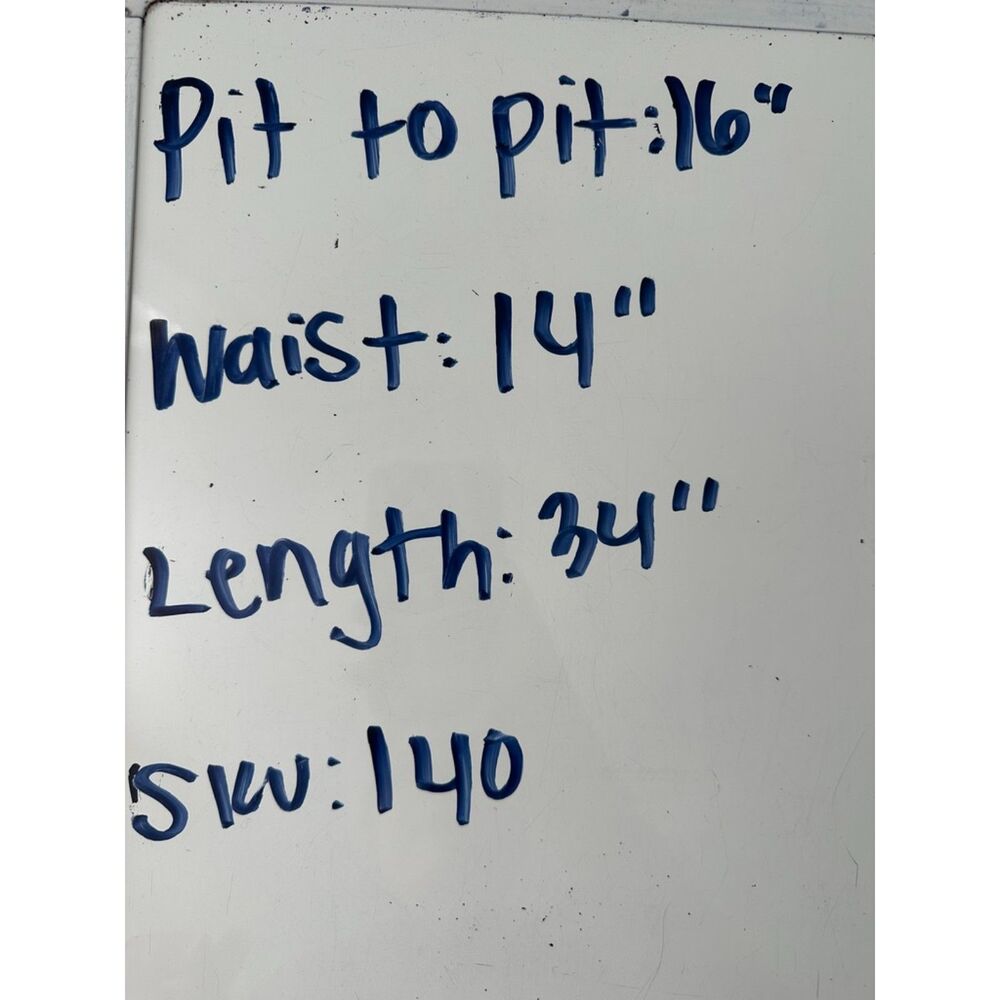 Pit to pit: 16"
Waist: 14"
Length: 34"
SKU: 140